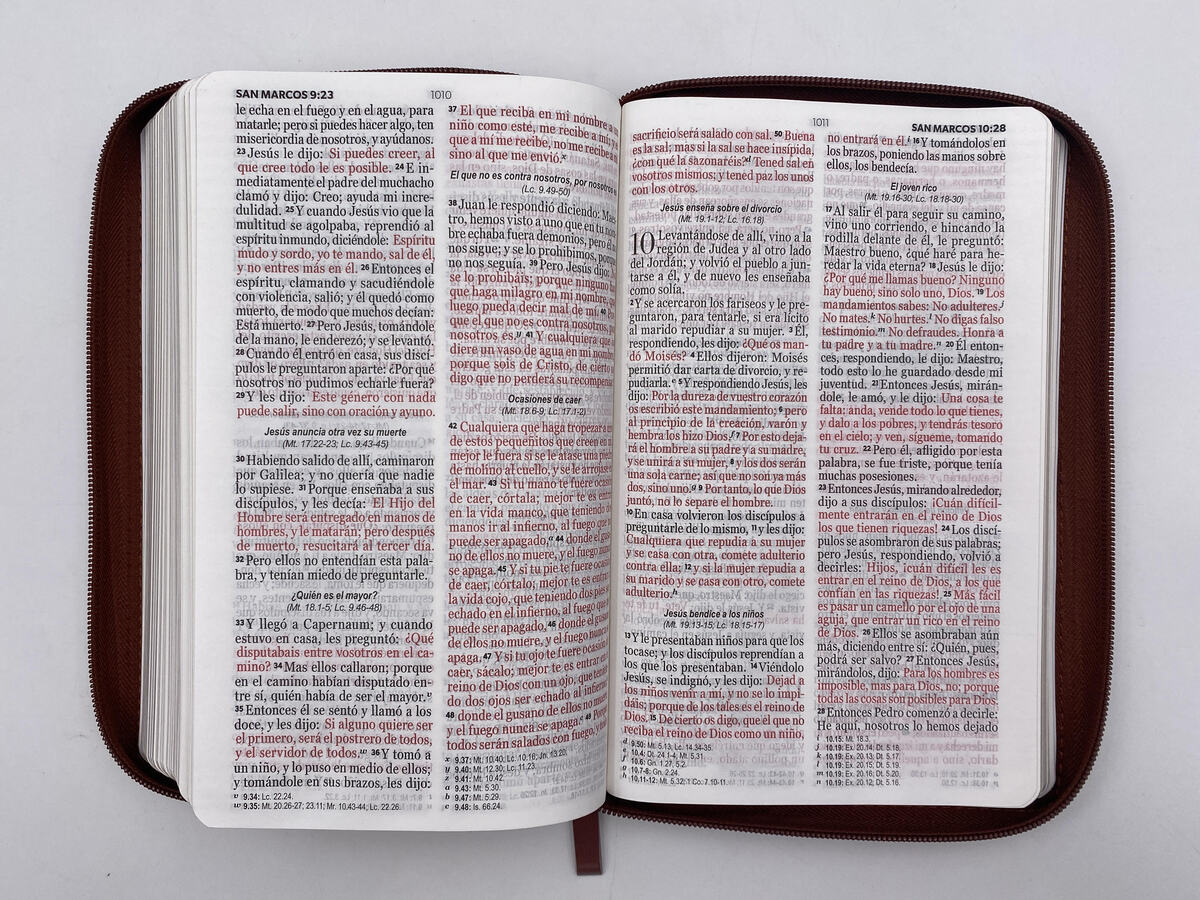 SAN MARCOS 9:23
1010
le echa en el fuego y en el agua, para
matarle; pero si puedes hacer algo, ten
misericordia de nosotros, y ayúdanos.
23 Jesús le dijo: Si puedes creer, al
que cree todo le es posible. 24 E in-
mediatamente el padre del muchacho
clamó y dijo: Creo; ayuda mi incre-
dulidad. 25 Y cuando Jesús vio que la
multitud se agolpaba, reprendió al
espíritu inmundo, diciéndole: Espíritu
mudo y sordo, yo te mando, sal de él,
y no entres más en él. 26 Entonces el
espíritu, clamando y sacudiéndole
con violencia, salió; y él quedó como
muerto, de modo que muchos decían:
Está muerto. 27 Pero Jesús, tomándole
de la mano, le enderezó; y se levantó.
28 Cuando él entró en casa, sus discí-
pulos le preguntaron aparte: ¿Por qué
nosotros no pudimos echarle fuera?
29 Y les dijo: Este género con nada
puede salir, sino con oración y ayuno.
Jesús anuncia otra vez su muerte
(Mt. 17.22-23; Lc. 9.43-45)
30 Habiendo salido de allí, caminaron
por Galilea; y no quería que nadie
lo supiese. 31 Porque enseñaba a sus
discípulos, y les decía: El Hijo del
Hombre será entregado en manos de
hombres, y le matarán; pero después
de muerto, resucitará al tercer día.
32 Pero ellos no entendían esta pala-
bra, y tenían miedo de preguntarle.
¿Quién es el mayor?
(Mt. 18.1-5; Lc. 9.46-48)
33 Y llegó a Capernaum; y cuando
estuvo en casa, les preguntó: ¿Qué
disputabais entre vosotros en el ca-
mino? 34 Mas ellos callaron; porque
en el camino habían disputado en-
tre sí, quién había de ser el mayor.v
35 Entonces él se sentó y llamó a los
doce, y les dijo: Si alguno quiere ser
el primero, será el postrero de todos,
y el servidor de todos.w 36 Y tomó a
un niño, y lo puso en medio de ellos;
y tomándole en sus brazos, les dijo:
v 9.34: Lc. 22.24.
w 9.35: Mt. 20.26-27; 23.11; Mr. 10.43-44; Lc. 22.26.
37 El que reciba en mi nombre a un
niño como este, me recibe a mí; y el
que a mí me recibe, no me recibe a
sino al que me envió.x
El que no es contra nosotros, por nosotros
(Lc. 9.49-50)
38 Juan le respondió diciendo: Maes-
tro, hemos visto a uno que en tu nom-
bre echaba fuera demonios, pero él
nos sigue; y se lo prohibimos, porque
no nos seguía. 39 Pero Jesús dijo: No
se lo prohibáis; porque ninguno hay
que haga milagro en mi nombre, que
luego pueda decir mal de mí. 40 Por-
que el que no es contra nosotros, por
nosotros es.y 41 Y cualquiera que os
diere un vaso de agua en mi nombre,
porque sois de Cristo, de cierto os
digo que no perderá su recompensa.
Ocasiones de caer
(Mt. 18.6-9; Lc. 17.1-2)
42 Cualquiera que haga tropezar a
de estos pequeñitos que creen en mí,
mejor le fuera si se le atase una piedra
de molino al cuello, y se le arrojase en
el mar. 43 Si tu mano te fuere ocasión
de caer, córtala; mejor te es entrar
en la vida manco, que teniendo dos
manos ir al infierno, al fuego que no
puede ser apagado,a 44 donde el gusano
de ellos no muere, y el fuego nunca
se apaga. 45 Y si tu pie te fuere ocasión
de caer, córtalo; mejor te es entrar a
la vida cojo, que teniendo dos pies ser
echado en el infierno, al fuego que no
puede ser apagado, 46 donde el gusano
de ellos no muere, y el fuego nunca se
apaga. 47 Y si tu ojo te fuere ocasión de
caer, sácalo; mejor te es entrar en el
reino de Dios con un ojo, que teniendo
dos ojos ser echado al infierno,
48 donde el gusano de ellos no muere,
y el fuego nunca se apaga.c 49 Porque
todos serán salados con fuego, y todo
x 9.37: Mt. 10.40; Lc. 10.16; Jn. 13.20.
y 9.40: Mt. 12.30; Lc. 11.23.
z 9.41: Mt. 10.42.
a 9.43: Mt. 5.30.
b 9.47: Mt. 5.29.
c 9.48: Is. 66.24.
1011
SAN MARCOS 10:28
sacrificio será salado con sal. 50 Buena
es la sal; mas si la sal se hace insípida,
¿con qué la sazonaréis?d Tened sal en
vosotros mismos; y tened paz los unos
con los otros.
Jesús enseña sobre el divorcio
(Mt. 19.1-12; Lc. 16.18)
10 Levantándose de allí, vino a la
región de Judea y al otro lado
del Jordán; y volvió el pueblo a jun-
tarse a él, y de nuevo les enseñaba
como solía.
2 Y se acercaron los fariseos y le pre-
guntaron, para tentarle, si era lícito
al marido repudiar a su mujer. 3 Él,
respondiendo, les dijo: ¿Qué os man-
dó Moisés? 4 Ellos dijeron: Moisés
permitió dar carta de divorcio, y re-
pudiarla.e 5 Y respondiendo Jesús, les
dijo: Por la dureza de vuestro corazón
os escribió este mandamiento; 6 pero
al principio de la creación, varón y
hembra los hizo Dios.f 7 Por esto deja-
rá el hombre a su padre y a su madre,
y se unirá a su mujer, 8 y los dos serán
una sola carne; así que no son ya más
dos, sino uno.g 9 Por tanto, lo que Dios
juntó, no lo separe el hombre.
10 En casa volvieron los discípulos a
preguntarle de lo mismo, 11 y les dijo:
Cualquiera que repudia a su mujer
y se casa con otra, comete adulterio
contra ella; 12 y si la mujer repudia a
su marido y se casa con otro, comete
adulterio.h
Jesús bendice a los niños
(Mt. 19.13-15; Lc. 18.15-17)
13 Y le presentaban niños para que los
tocase; y los discípulos reprendían a
los que los presentaban. 14 Viéndolo
Jesús, se indignó, y les dijo: Dejad a
los niños venir a mí, y no se lo impi-
dáis; porque de los tales es el reino de
Dios. 15 De cierto os digo, que el que no
reciba el reino de Dios como un niño,
d 9.50: Mt. 5.13; Lc. 14.34-35.
e 10.4: Dt. 24.1-4; Mt. 5.31.
f 10.6: Gn. 1.27; 5.2.
g 10.7-8: Gn. 2.24.
h 10.11-12: Mt. 5.32; 1 Co. 7.10-11.
no entrará en él.i 16 Y tomándolos en
los brazos, poniendo las manos sobre
ellos, los bendecía.
El joven rico
(Mt. 19.16-30; Lc. 18.18-30)
17 Al salir él para seguir su camino,
vino uno corriendo, e hincando la
rodilla delante de él, le preguntó:
Maestro bueno, ¿qué haré para he-
redar la vida eterna? 18 Jesús le dijo:
¿Por qué me llamas bueno? Ninguno
hay bueno, sino solo uno, Dios. 19 Los
mandamientos sabes: No adulteres.j
No mates.k No hurtes.l No digas falso
testimonio.m No defraudes. Honra a
tu padre y a tu madre.n 20 Él enton-
ces, respondiendo, le dijo: Maestro,
todo esto lo he guardado desde mi
juventud. 21 Entonces Jesús, mirán-
dole, le amó, y le dijo: Una cosa te
falta: anda, vende todo lo que tienes,
y dalo a los pobres, y tendrás tesoro
en el cielo; y ven, sígueme, tomando
tu cruz. 22 Pero él, afligido por esta
palabra, se fue triste, porque tenía
muchas posesiones.
23 Entonces Jesús, mirando alrededor,
dijo a sus discípulos: ¡Cuán difícil-
mente entrarán en el reino de Dios
los que tienen riquezas! 24 Los discí-
pulos se asombraron de sus palabras;
pero Jesús, respondiendo, volvió a
decirles: Hijos, ¡cuán difícil les es
entrar en el reino de Dios, a los que
confían en las riquezas! 25 Más fácil
es pasar un camello por el ojo de una
aguja, que entrar un rico en el reino
de Dios. 26 Ellos se asombraban aún
más, diciendo entre sí: ¿Quién, pues,
podrá ser salvo? 27 Entonces Jesús,
mirándolos, dijo: Para los hombres es
imposible, mas para Dios, no; porque
todas las cosas son posibles para Dios.
28 Entonces Pedro comenzó a decirle:
He aquí, nosotros lo hemos dejado
i 10.15: Mt. 18.3.
j 10.19: Ex. 20.14; Dt. 5.18.
k 10.19: Ex. 20.13; Dt. 5.17.
l 10.19: Ex. 20.15; Dt. 5.19.
m 10.19: Ex. 20.16; Dt. 5.20.
n 10.19: Ex. 20.12; Dt. 5.16.